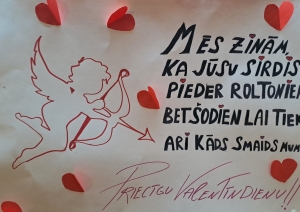 MĒS ZINĀM,
KA JŪSU SIRDIS
PIEDER ROLTONIEM
BET ŠODIEN LAI TIEK
ARĪ KĀDS SMAIDS MUMS
PRIECĪGU VALENTĪNDIENU!!